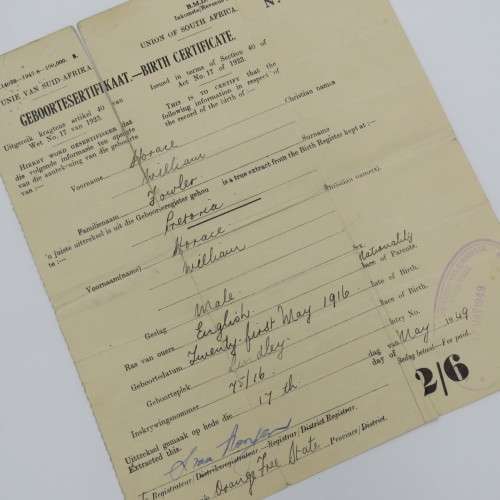 B.M.D.
Inkomste/Revenue
N
UNION OF SOUTH AFRICA.
UNIE VAN SUID-AFRIKA.
GEBOORTESERTIFIKAAT.—BIRTH CERTIFICATE.
Uitgereik kragtens artikel 40 van
Wet No. 17 van 1923.
Issued in terms of Section 40 of
Act No. 17 of 1923.
HIERBY WORD GESERTIFISEER dat
die volgende informasie ten opsigte
van die aantekening van die geboorte
van :—
THIS IS TO CERTIFY that the
following information in respect of
the record of birth of :—
Voornaam Horace Christian names
William
Familienaam Fowler Surname
'n juiste uittreksel is uit die Geboorteregister gehou is a true extract from the Birth Register kept at :—
te :— Pretoria
Voornaam(name) Horace Christian name(s)
William
Geslag Male Sex.
Nationality
Ras van ouers English Race of Parents.
Geboortedatum Twenty first May 1916 Date of Birth.
Geboorteplek Lindley Place of Birth.
Inskrywingsnommer 75/16 Entry No.
Uittreksel gemaak op hede die 17th dag van May 1949
Extracted this day of
Beslag betaal.—Fee paid.
2/6
Registrateur/Distriksregistrateur—Registrar/District Registrar.
Orange Free State Province/District.